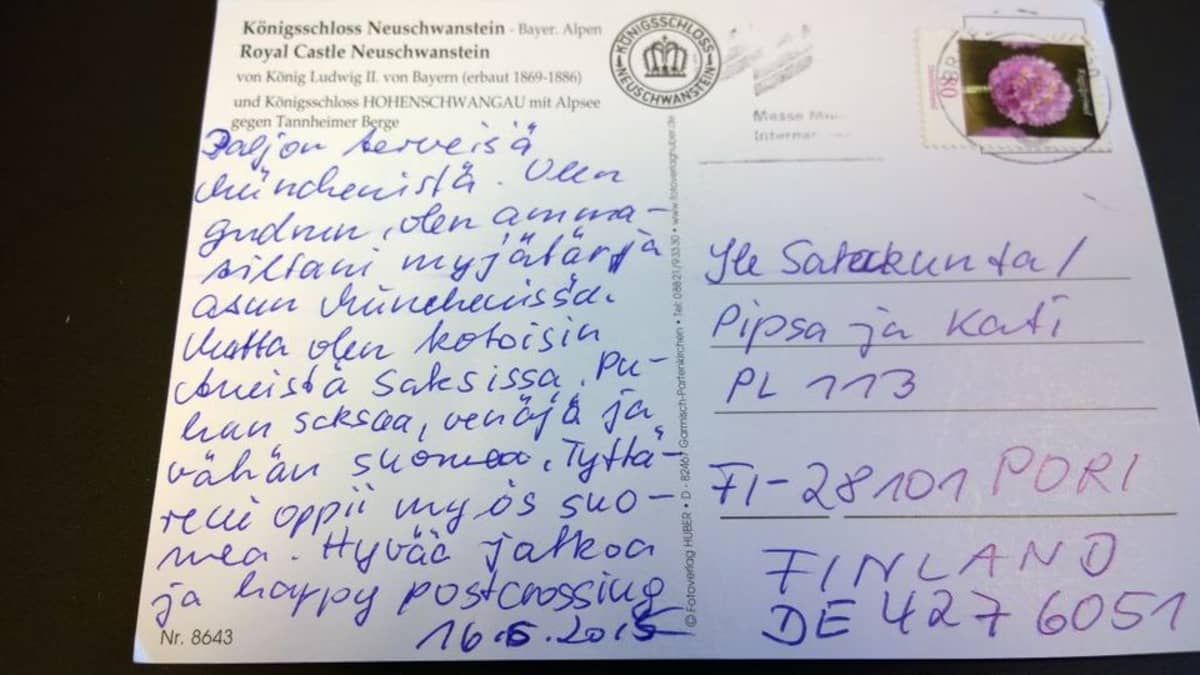 Königsschloss Neuschwanstein - Bayer. Alpen
Royal Castle Neuschwanstein
von König Ludwig II. von Bayern (erbaut 1869-1886)
und Königsschloss HOHENSCHWANGAU mit Alpsee
gegen Tannheimer Berge
KÖNIGSSCHLOSS
NEUSCHWANSTEIN
Messe
Interna
80
Paljon terveisä
Münchenistä. Olen
Gudrun, olen amma-
tiltani myjätär ja
asun Münchenissä.
Mutta olen kotoisin
saksissa. Pu-
hun saksaa, venäjä ja
vähän suomea. Tyttä-
reni oppii myös suo-
mea. Hyvää jatkoa
ja happy postcrossing
16.6.2015
Nr. 8643
© Fotoverlag HUBER • D - 82467 Garmisch-Partenkirchen • Tel: 08821/93330 • www.fotoverlaghuber.de
Yle Satakunta/
Pipsa ja Kati
PL 113
FI-28101 PORI
FINLAND
DE 4276051